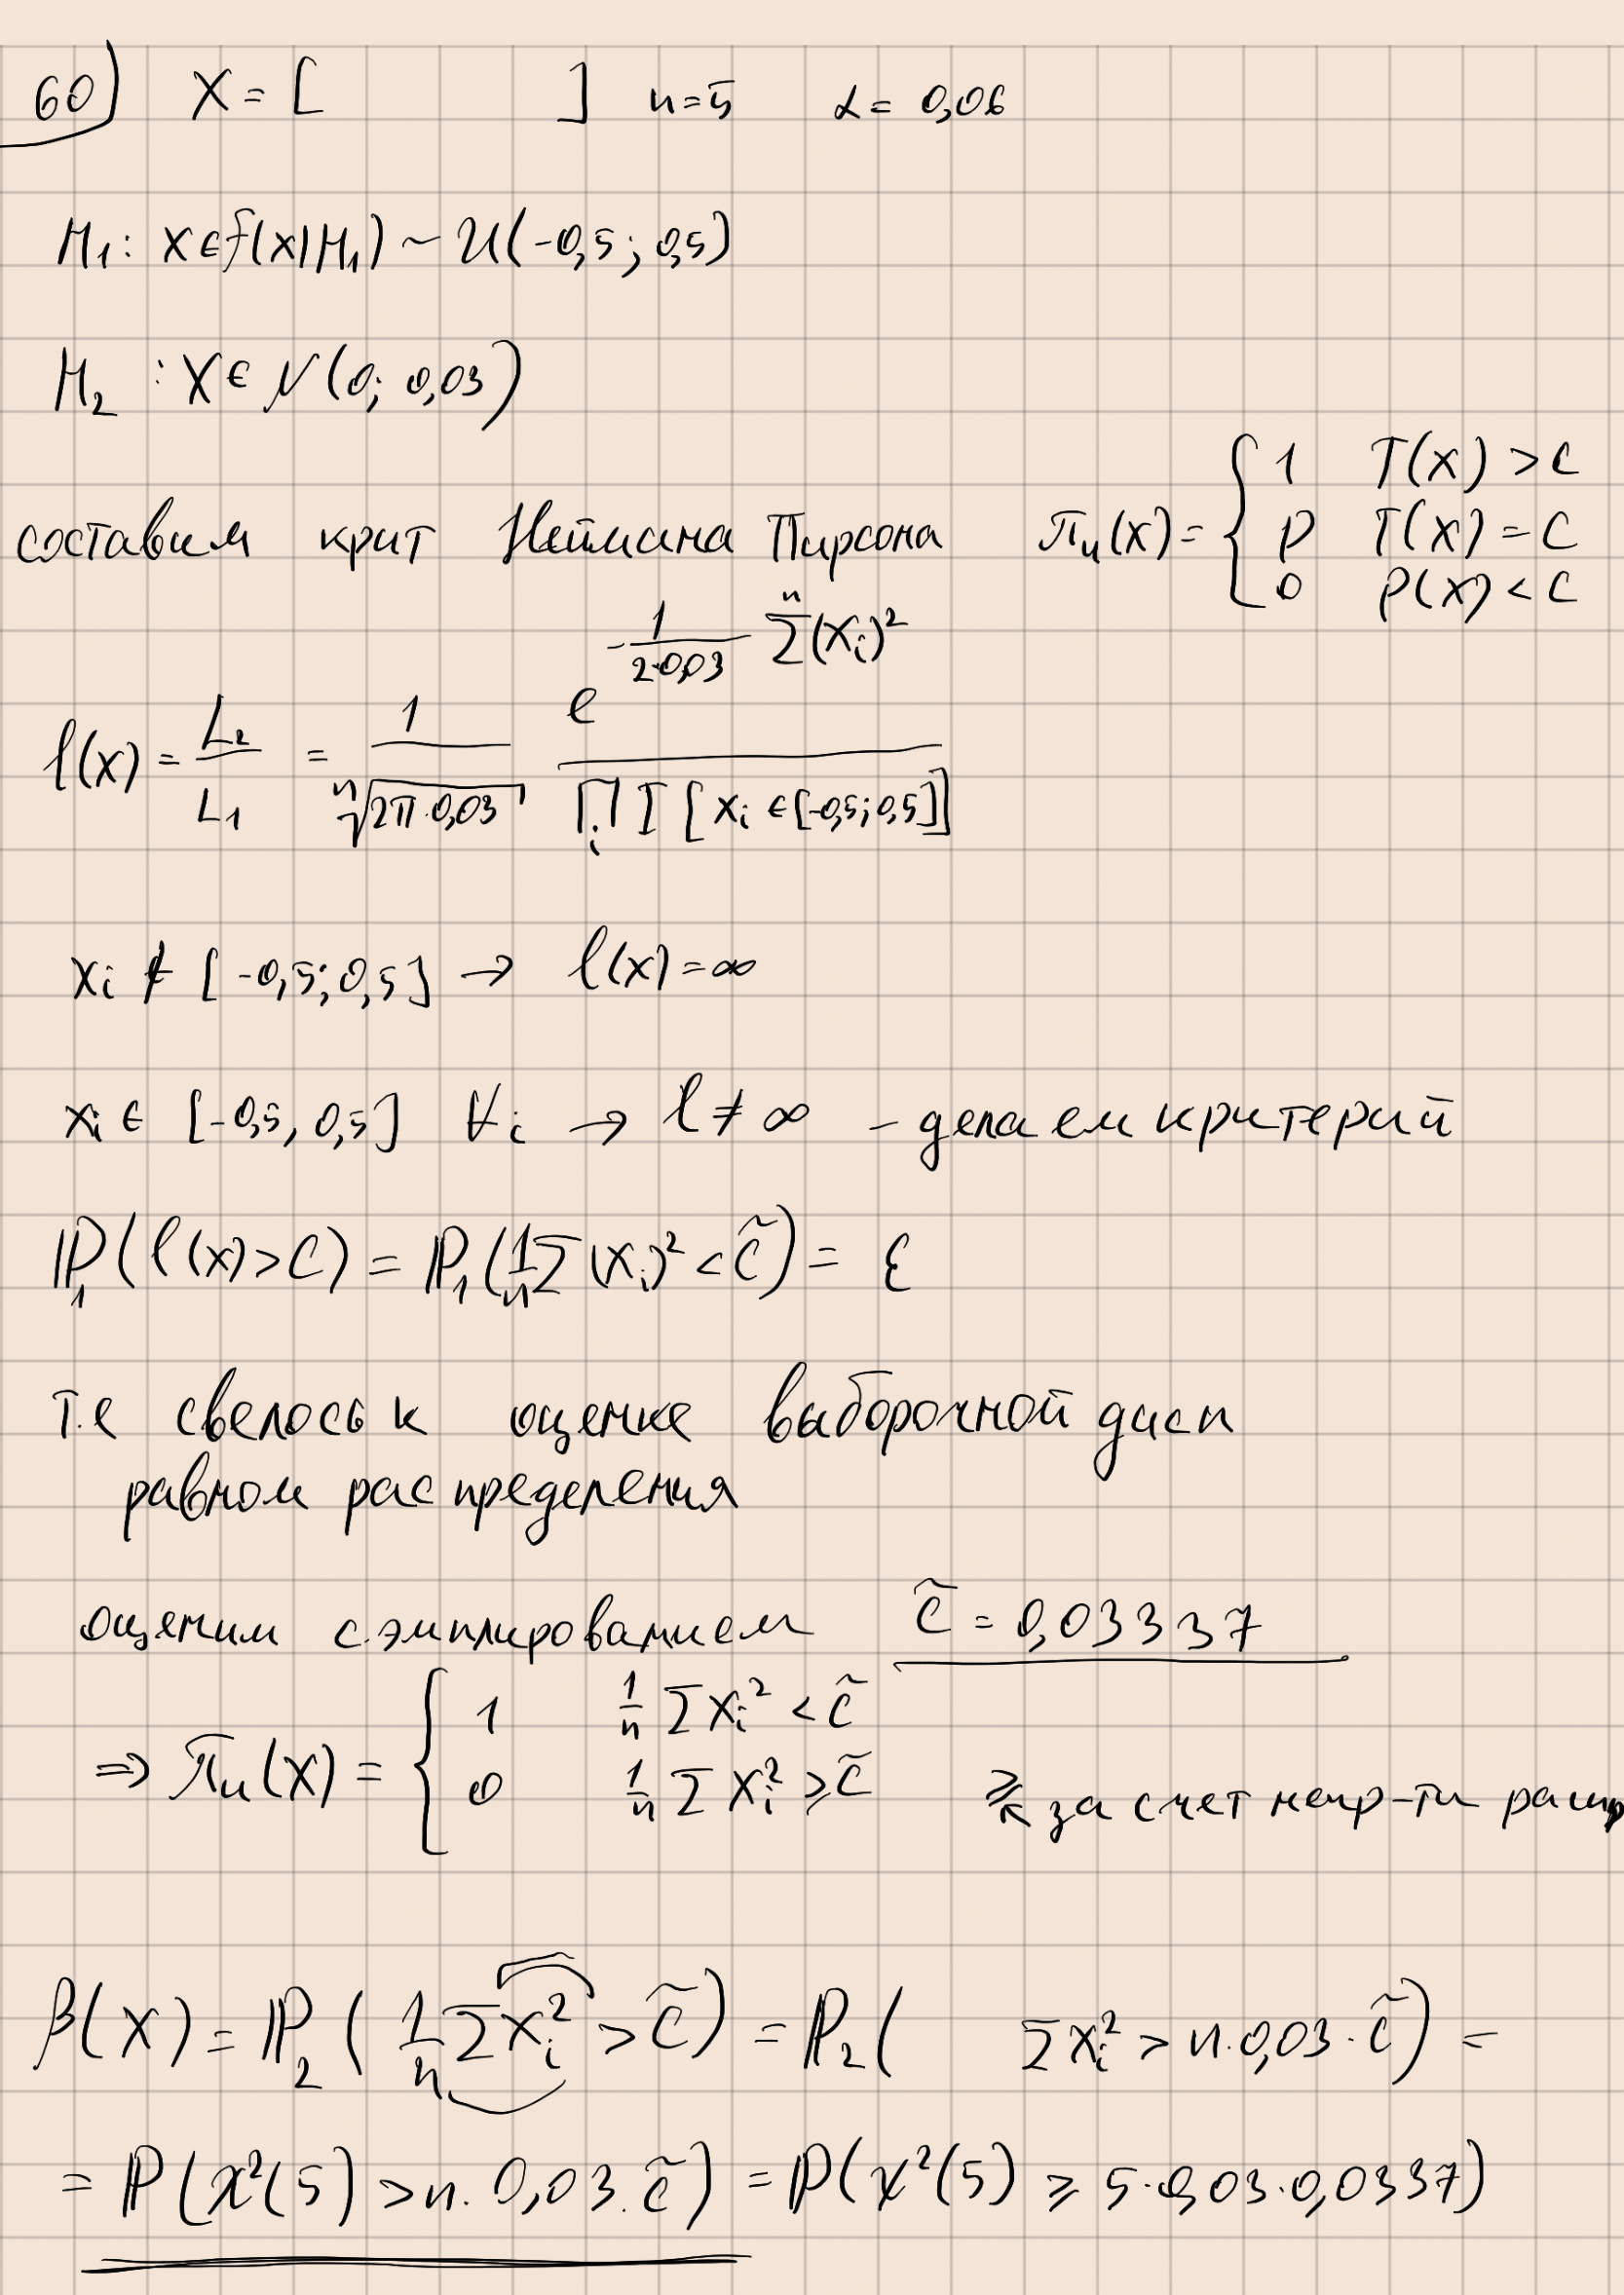 60) X = [ ] n=5 α = 0,06
H₁: X ∈ f(x|H₁) ~ U(-0,5; 0,5)
H₂ : X ∈ N(0; 0,03)
составим крит Неймана Пирсона πₙ(x) = { 1 T(x) > C
p T(x) = C
0 P(x) < C
l(x) = L₂/L₁ = 1/ⁿ√(2π·0,03) · e^(-1/(2·0,03) Σⁿ(Xᵢ)²) / ∏ᵢ I[xᵢ ∈ [-0,5; 0,5]]
xᵢ ∉ [-0,5; 0,5] → l(x) = ∞
xᵢ ∈ [-0,5, 0,5] ∀i → l ≠ ∞ - делаем критерий
ℙ₁(l(x) > C) = ℙ₁(1/n Σ(Xᵢ)² < c̃) = ε
т.е свелось к оценке выборочной дисп
равном распределения
оценим сэмплированием c̃ = 0,03337
⇒ πₙ(x) = { 1 1/n Σ Xᵢ² < c̃
0 1/n Σ Xᵢ² ≥ c̃ ≥ за счет непр-ти
β(x) = ℙ₂(1/n Σ Xᵢ² > c̃) = ℙ₂( Σ Xᵢ² > n·0,03·c̃) =
= ℙ(χ²(5) > n·0,03·c̃) = ℙ(χ²(5) ≥ 5·0,03·0,0337)